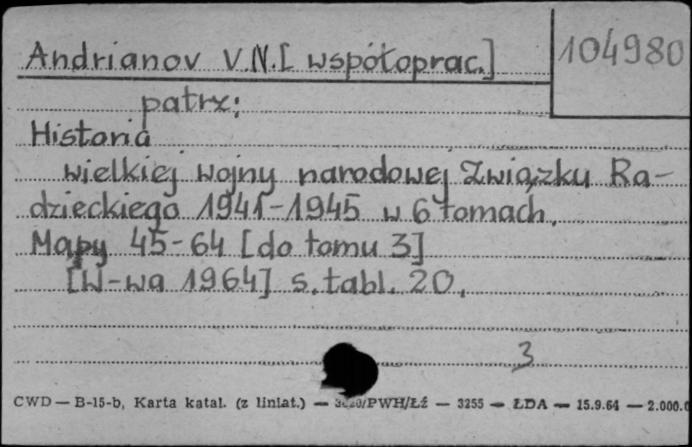 Andrianov V.N. [współoprac.]
104980
patrz:
Historia
wielkiej wojny narodowej Związku Ra-
dzieckiego 1941-1945 w 6 tomach.
Mapy 45-64 [do tomu 3]
[W-wa 1964] s. tabl. 20.
3
CWD — B-15-b, Karta katal. (z liniat.) — /PWH/Łź — 3255 — ŁDA — 15.9.64 — 2.000.0